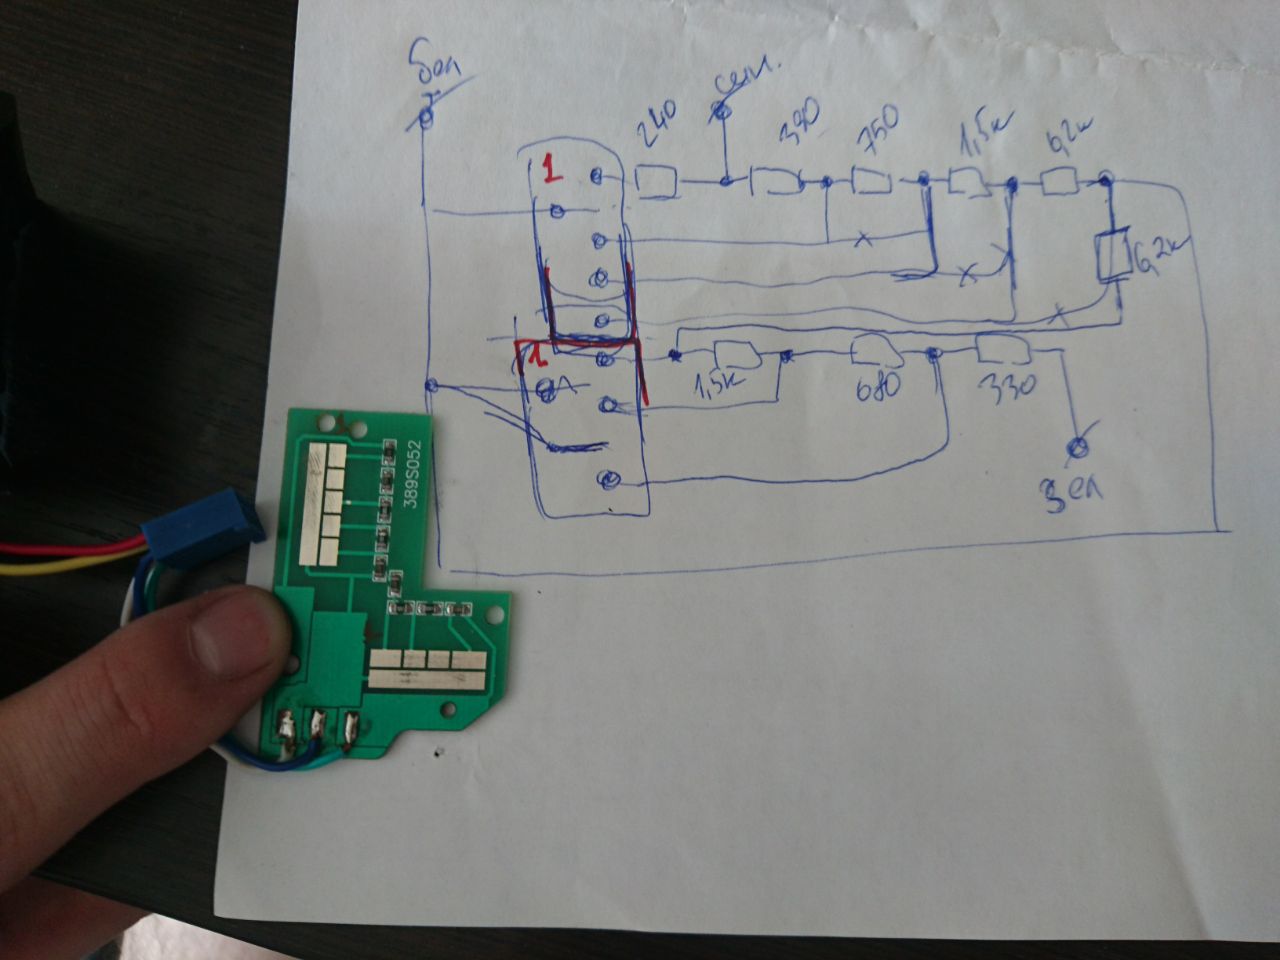 бел
син.
240
390
750
1,5к
6,2к
1
6,2к
1
1,5к
680
330
зел
389S052